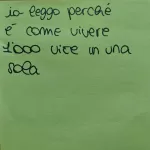 io leggo perché
é come vivere
1000 vite in una
sola